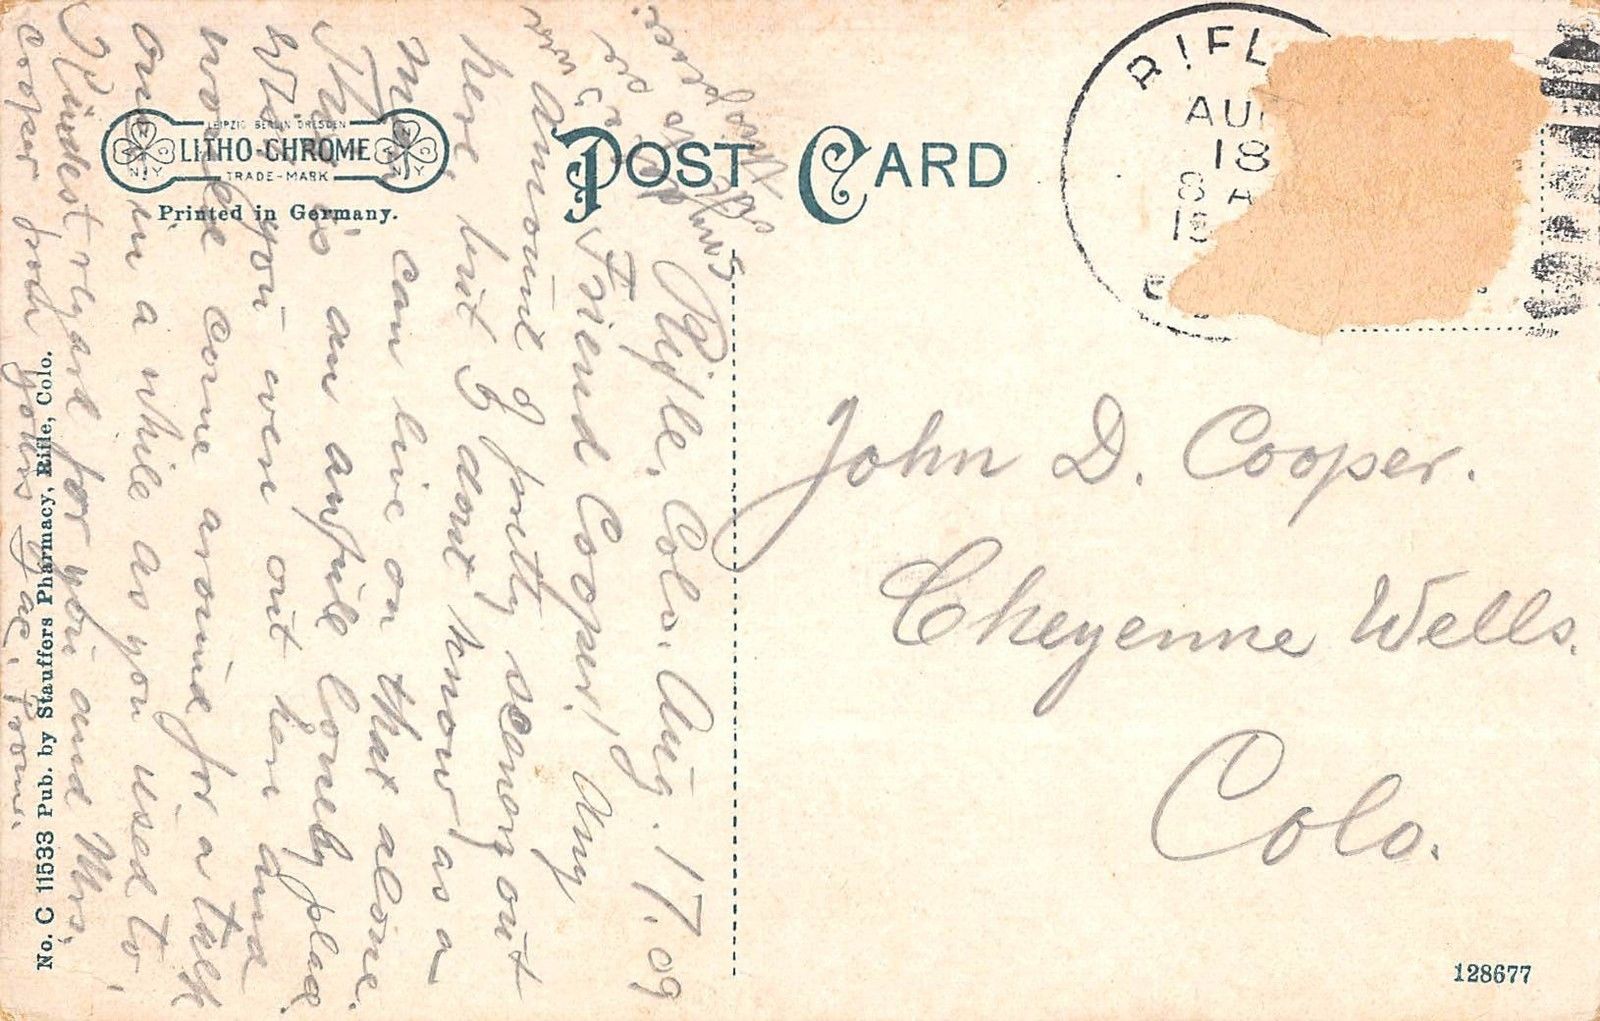 LEIPZIG BERLIN DRESDEN
LITHO-CHROME
TRADE-MARK
Printed in Germany.
POST CARD
RIFL
AU
18
8 A
Rifle. Colo. Aug. 17. 09
Friend Cooper! Any
amount of pretty scenery out
here. but I dont know as a
man can live on that alone.
This is an awfule lonely place
wish you were out here and
would come around for a talk
once in a while as you used to.
Kindest regard for you and Mrs.
Cooper from yours
John D. Cooper.
Cheyenne Wells.
Colo.
No. C 11533 Pub. by Stauffers Pharmacy, Rifle, Colo.
128677